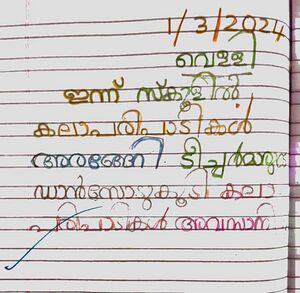 1/3/2024
വെള്ളി
ഇന്ന് സ്കൂളിൽ
കലാപരിപാടികൾ
അരങ്ങേറി ടീച്ചർമാരുടെ
ഡാൻസോടുകൂടി കലാ
പരിപാടികൾ അവസാനി